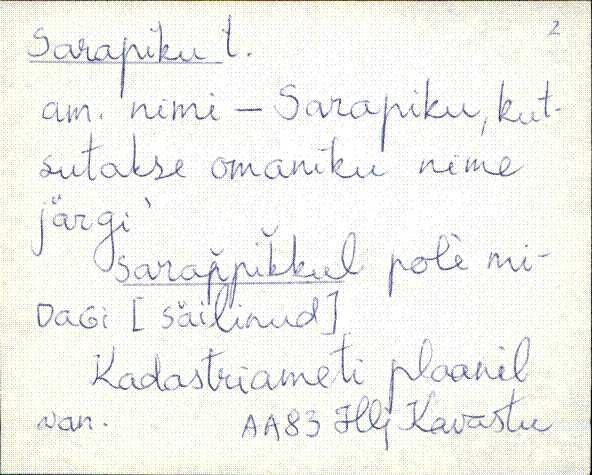 2
Sarapiku t.
am. nimi – Sarapiku, kut-
sutakse omaniku nime
järgi
sarap̆pik̆kul polè mi-
DaGi [säilinud]
Kadastriameti plaanil
van. AA83 Hlj Kavastu